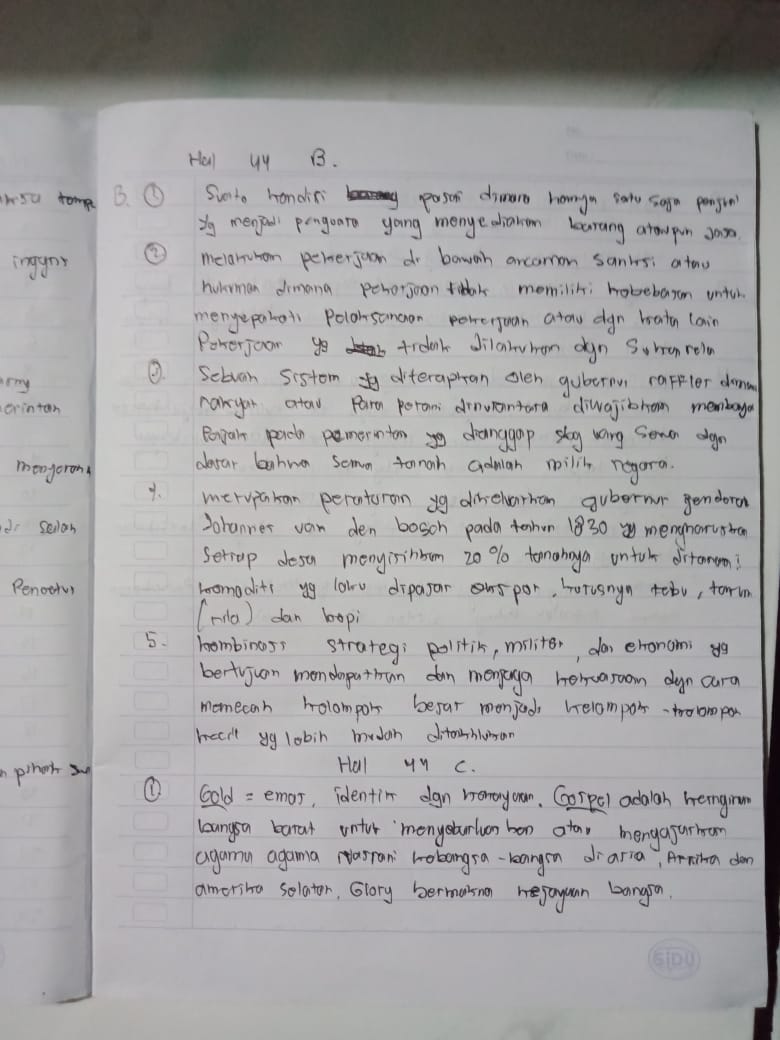 Hal 44 B.
B. ① Suatu kondisi pasar dimana hanya satu saja penjual
yg menjadi penguasa yang menyediakan barang ataupun jasa.
② melakukan pekerjaan di bawah ancaman sanksi atau
hukuman dimana pekerjaan tidak memiliki kebebasan untuk
menyepakati pelaksanaan pekerjaan atau dgn kata lain
Pekerjaan yg tidak dilakukan dgn Sukarela
③ Sebuah Sistem yg diterapkan oleh gubernur raffles dimana
rakyat atau Para petani dinusantara diwajibkan membayar
Pajak pada pemerintah yg dianggap sbg uang Sewa dgn
dasar bahwa semua tanah adalah milik negara.
4. merupakan peraturan yg dikeluarkan gubernur jenderal
Johannes van den bosch pada tahun 1830 yg mengharuskan
Setiap desa menyisihkan 20% tanahnya untuk ditanami
komoditi yg laku dipasar ekspor, khususnya tebu, tarum
(nila) dan kopi
5. kombinasi strategi politik, militer, dan ekonomi yg
bertujuan mendapatkan dan menjaga kekuasaan dgn cara
memecah kelompok besar menjadi kelompok-kelompok
kecil yg lebih mudah ditaklukan
Hal 44 C.
① Gold = emas, identik dgn kekayaan. Gospel adalah keinginan
bangsa barat untuk menyebarluaskan atau mengajarkan
agama agama Nasrani kebangsa-bangsa diasia, Afrika dan
amerika selatan. Glory bermakna kejayaan bangsa.
tempa
inggris
army
erintah
Selah
SiDU